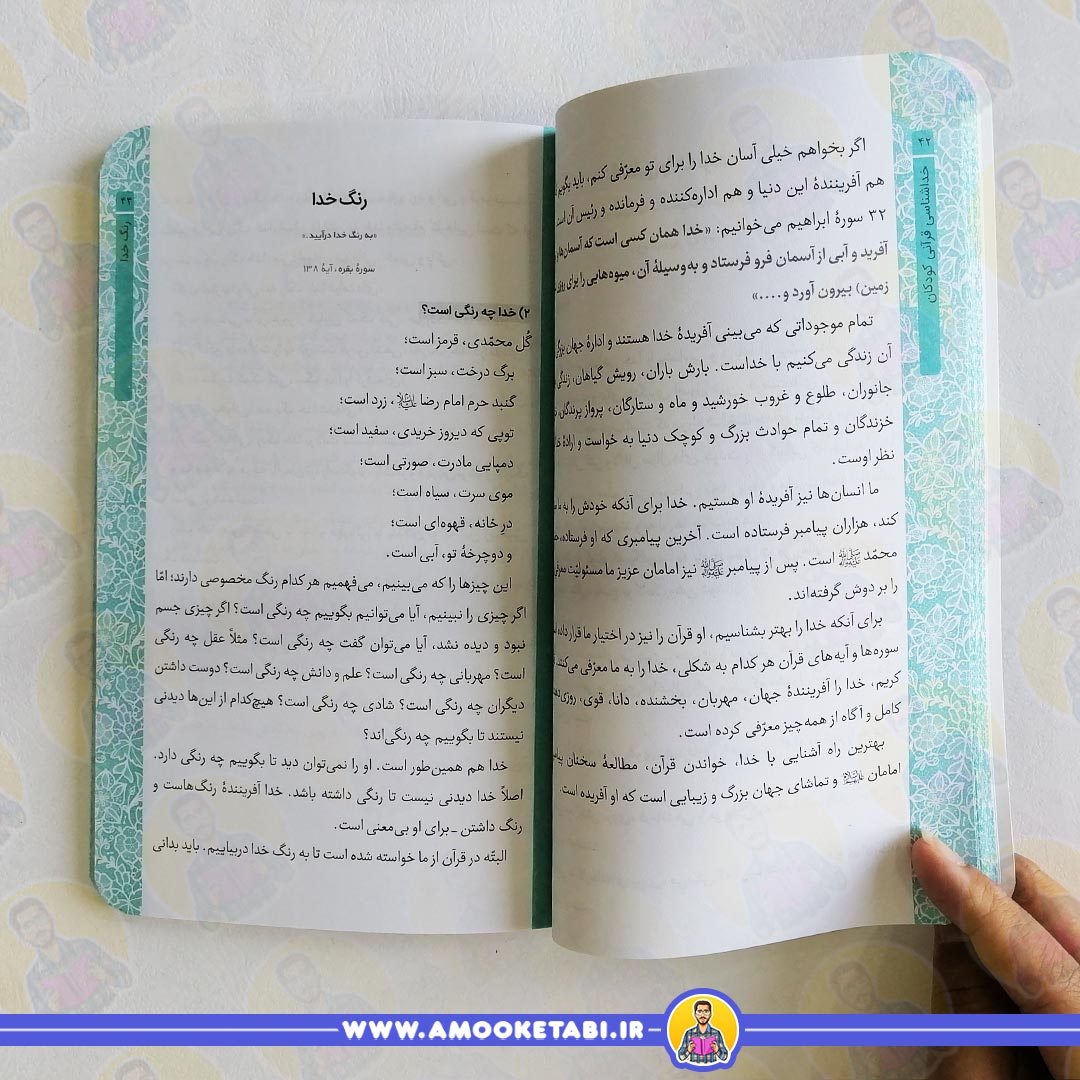 ۴۲
خداشناسی قرآنی کودکان
اگر بخواهم خیلی آسان خدا را برای تو معرّفی کنم، باید بگویم
هم آفرینندهٔ این دنیا و هم اداره‌کننده و فرمانده و رئیس آن است
۳۲ سورهٔ ابراهیم می‌خوانیم: «خدا همان کسی است که آسمان‌ها و
آفرید و آبی از آسمان فرو فرستاد و به‌وسیلهٔ آن، میوه‌هایی را برای
زمین) بیرون آورد و....»
تمام موجوداتی که می‌بینی آفریدهٔ خدا هستند و ادارهٔ جهان
آن زندگی می‌کنیم با خداست. بارش باران، رویش گیاهان، زندگی
جانوران، طلوع و غروب خورشید و ماه و ستارگان، پرواز پرندگان،
خزندگان و تمام حوادث بزرگ و کوچک دنیا به خواست و ارادهٔ
نظر اوست.
ما انسان‌ها نیز آفریدهٔ او هستیم. خدا برای آنکه خودش را به ما
کند، هزاران پیامبر فرستاده است. آخرین پیامبری که او فرستاده،
محمّد ﷺ است. پس از پیامبر ﷺ نیز امامان عزیز ما مسئولیّت
را بر دوش گرفته‌اند.
برای آنکه خدا را بهتر بشناسیم، او قرآن را نیز در اختیار ما قرار داده
سوره‌ها و آیه‌های قرآن هر کدام به شکلی، خدا را به ما معرّفی می‌کنند.
کریم، خدا را آفرینندهٔ جهان، مهربان، بخشنده، دانا، قوی،
کامل و آگاه از همه‌چیز معرّفی کرده است.
بهترین راه آشنایی با خدا، خواندن قرآن، مطالعهٔ سخنان
امامان علیهم‌السلام و تماشای جهان بزرگ و زیبایی است که او آفریده است.
۴۳
رنگ خدا
رنگ خدا
«به رنگ خدا درآیید.»
سورهٔ بقره، آیهٔ ۱۳۸
۲) خدا چه رنگی است؟
گُل محمّدی، قرمز است؛
برگ درخت، سبز است؛
گنبد حرم امام رضا علیه‌السلام، زرد است؛
توپی که دیروز خریدی، سفید است؛
دمپایی مادرت، صورتی است؛
موی سرت، سیاه است؛
درِ خانه، قهوه‌ای است؛
و دوچرخهٔ تو، آبی است.
این چیزها را که می‌بینیم، می‌فهمیم هر کدام رنگ مخصوصی دارند؛ امّا
اگر چیزی را نبینیم، آیا می‌توانیم بگوییم چه رنگی است؟ اگر چیزی جسم
نبود و دیده نشد، آیا می‌توان گفت چه رنگی است؟ مثلاً عقل چه رنگی
است؟ مهربانی چه رنگی است؟ علم و دانش چه رنگی است؟ دوست داشتن
دیگران چه رنگی است؟ شادی چه رنگی است؟ هیچ‌کدام از این‌ها دیدنی
نیستند تا بگوییم چه رنگی‌اند؟
خدا هم همین‌طور است. او را نمی‌توان دید تا بگوییم چه رنگی دارد.
اصلاً خدا دیدنی نیست تا رنگی داشته باشد. خدا آفرینندهٔ رنگ‌هاست و
رنگ داشتن ـ برای او بی‌معنی است.
البتّه در قرآن از ما خواسته شده است تا به رنگ خدا دربیاییم. باید بدانی
WWW.AMOOKETABI.IR